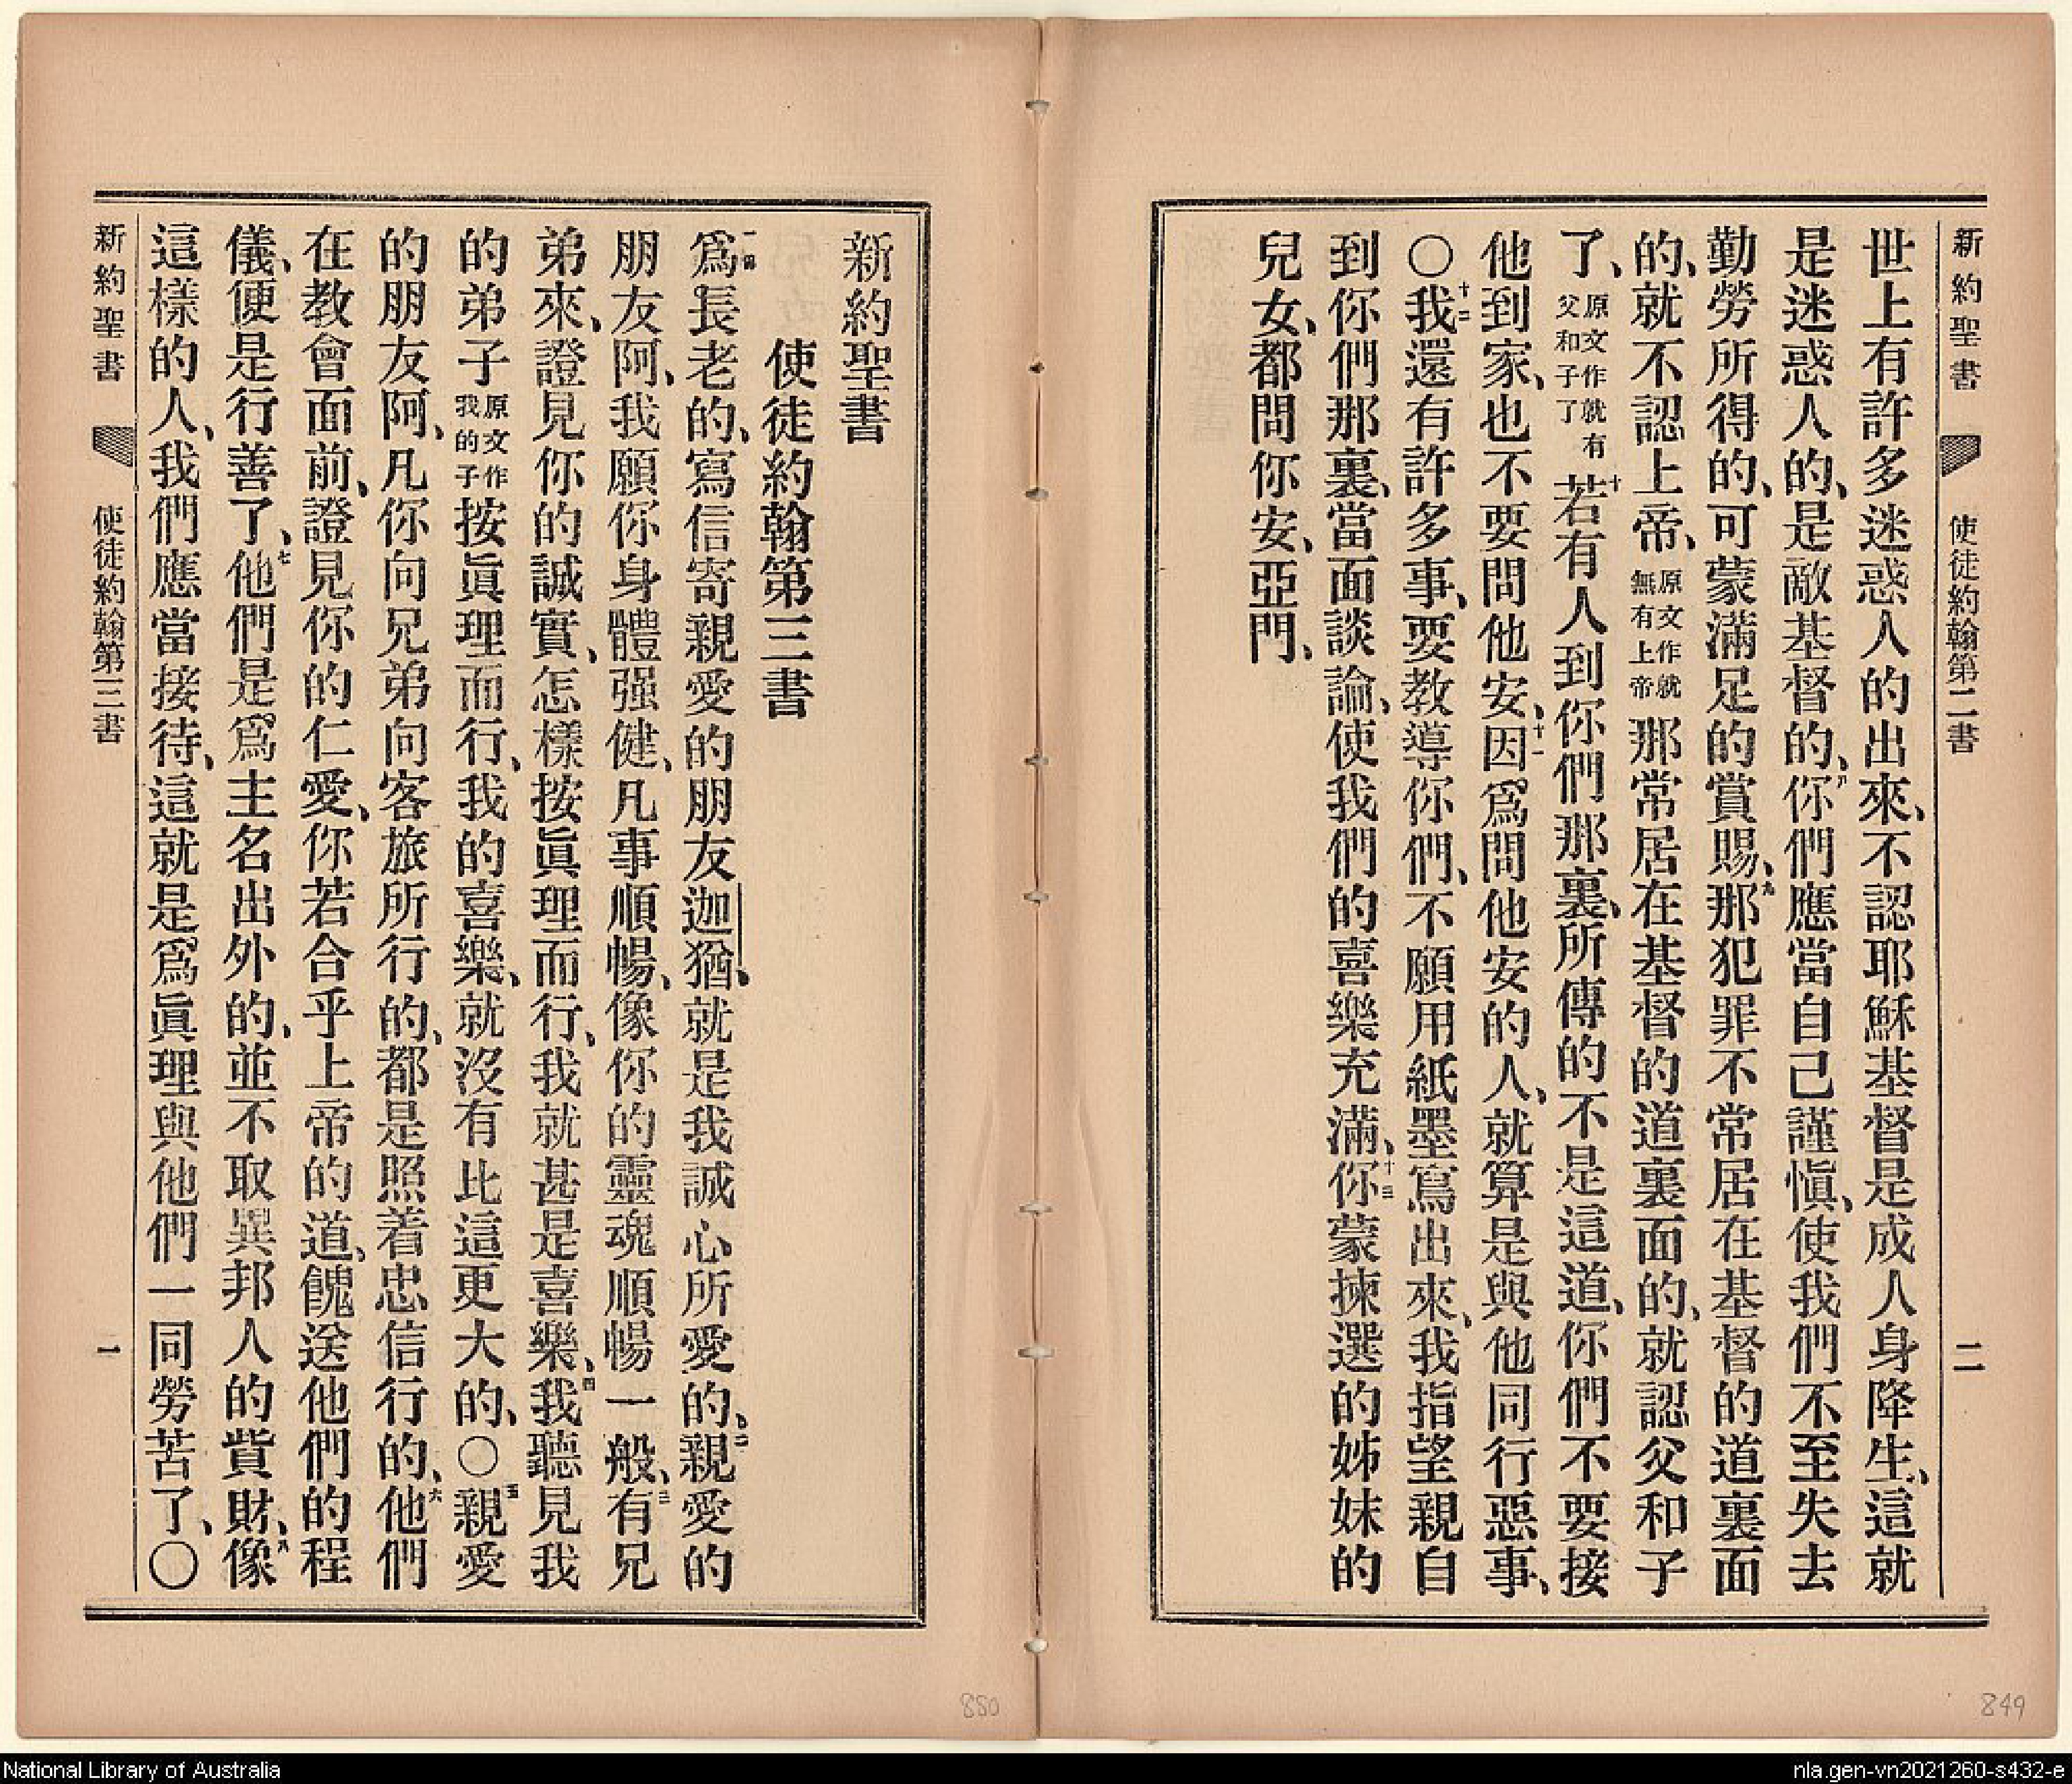 新約聖書 使徒約翰第二書 二
世上有許多迷惑人的出來、不認耶穌基督是成人身降生、這就
是迷惑人的、是敵基督的、八你們應當自己謹愼、使我們不至失去
勤勞所得的、可蒙滿足的賞賜、九那犯罪不常居在基督的道裏面
的、就不認上帝、原文作就無有上帝那常居在基督的道裏面的、就認父和子
了、原文作就有父和子了十若有人到你們那裏、所傳的不是這道、你們不要接
他到家、也不要問他安、十一因爲問他安的人、就算是與他同行惡事、
〇十二我還有許多事、要教導你們、不願用紙墨寫出來、我指望親自
到你們那裏、當面談論、使我們的喜樂充滿、十三你蒙揀選的姊妹的
兒女、都問你安、亞門、
849
新約聖書
使徒約翰第三書
一爲長老的、寫信寄親愛的朋友迦猶、就是我誠心所愛的、二親愛的
朋友阿、我願你身體强健、凡事順暢、像你的靈魂順暢一般、三有兄
弟來、證見你的誠實、怎樣按眞理而行、我就甚是喜樂、四我聽見我
的弟子原文作我的子按眞理而行、我的喜樂、就沒有比這更大的、〇五親愛
的朋友阿、凡你向兄弟向客旅所行的、都是照着忠信行的、六他們
在教會面前、證見你的仁愛、你若合乎上帝的道、餽送他們的程
儀、便是行善了、七他們是爲主名出外的、並不取異邦人的貲財、八像
這樣的人、我們應當接待、這就是爲眞理與他們一同勞苦了、〇
新約聖書 使徒約翰第三書 一
850
National Library of Australia
nla.gen-vn2021260-s432-e